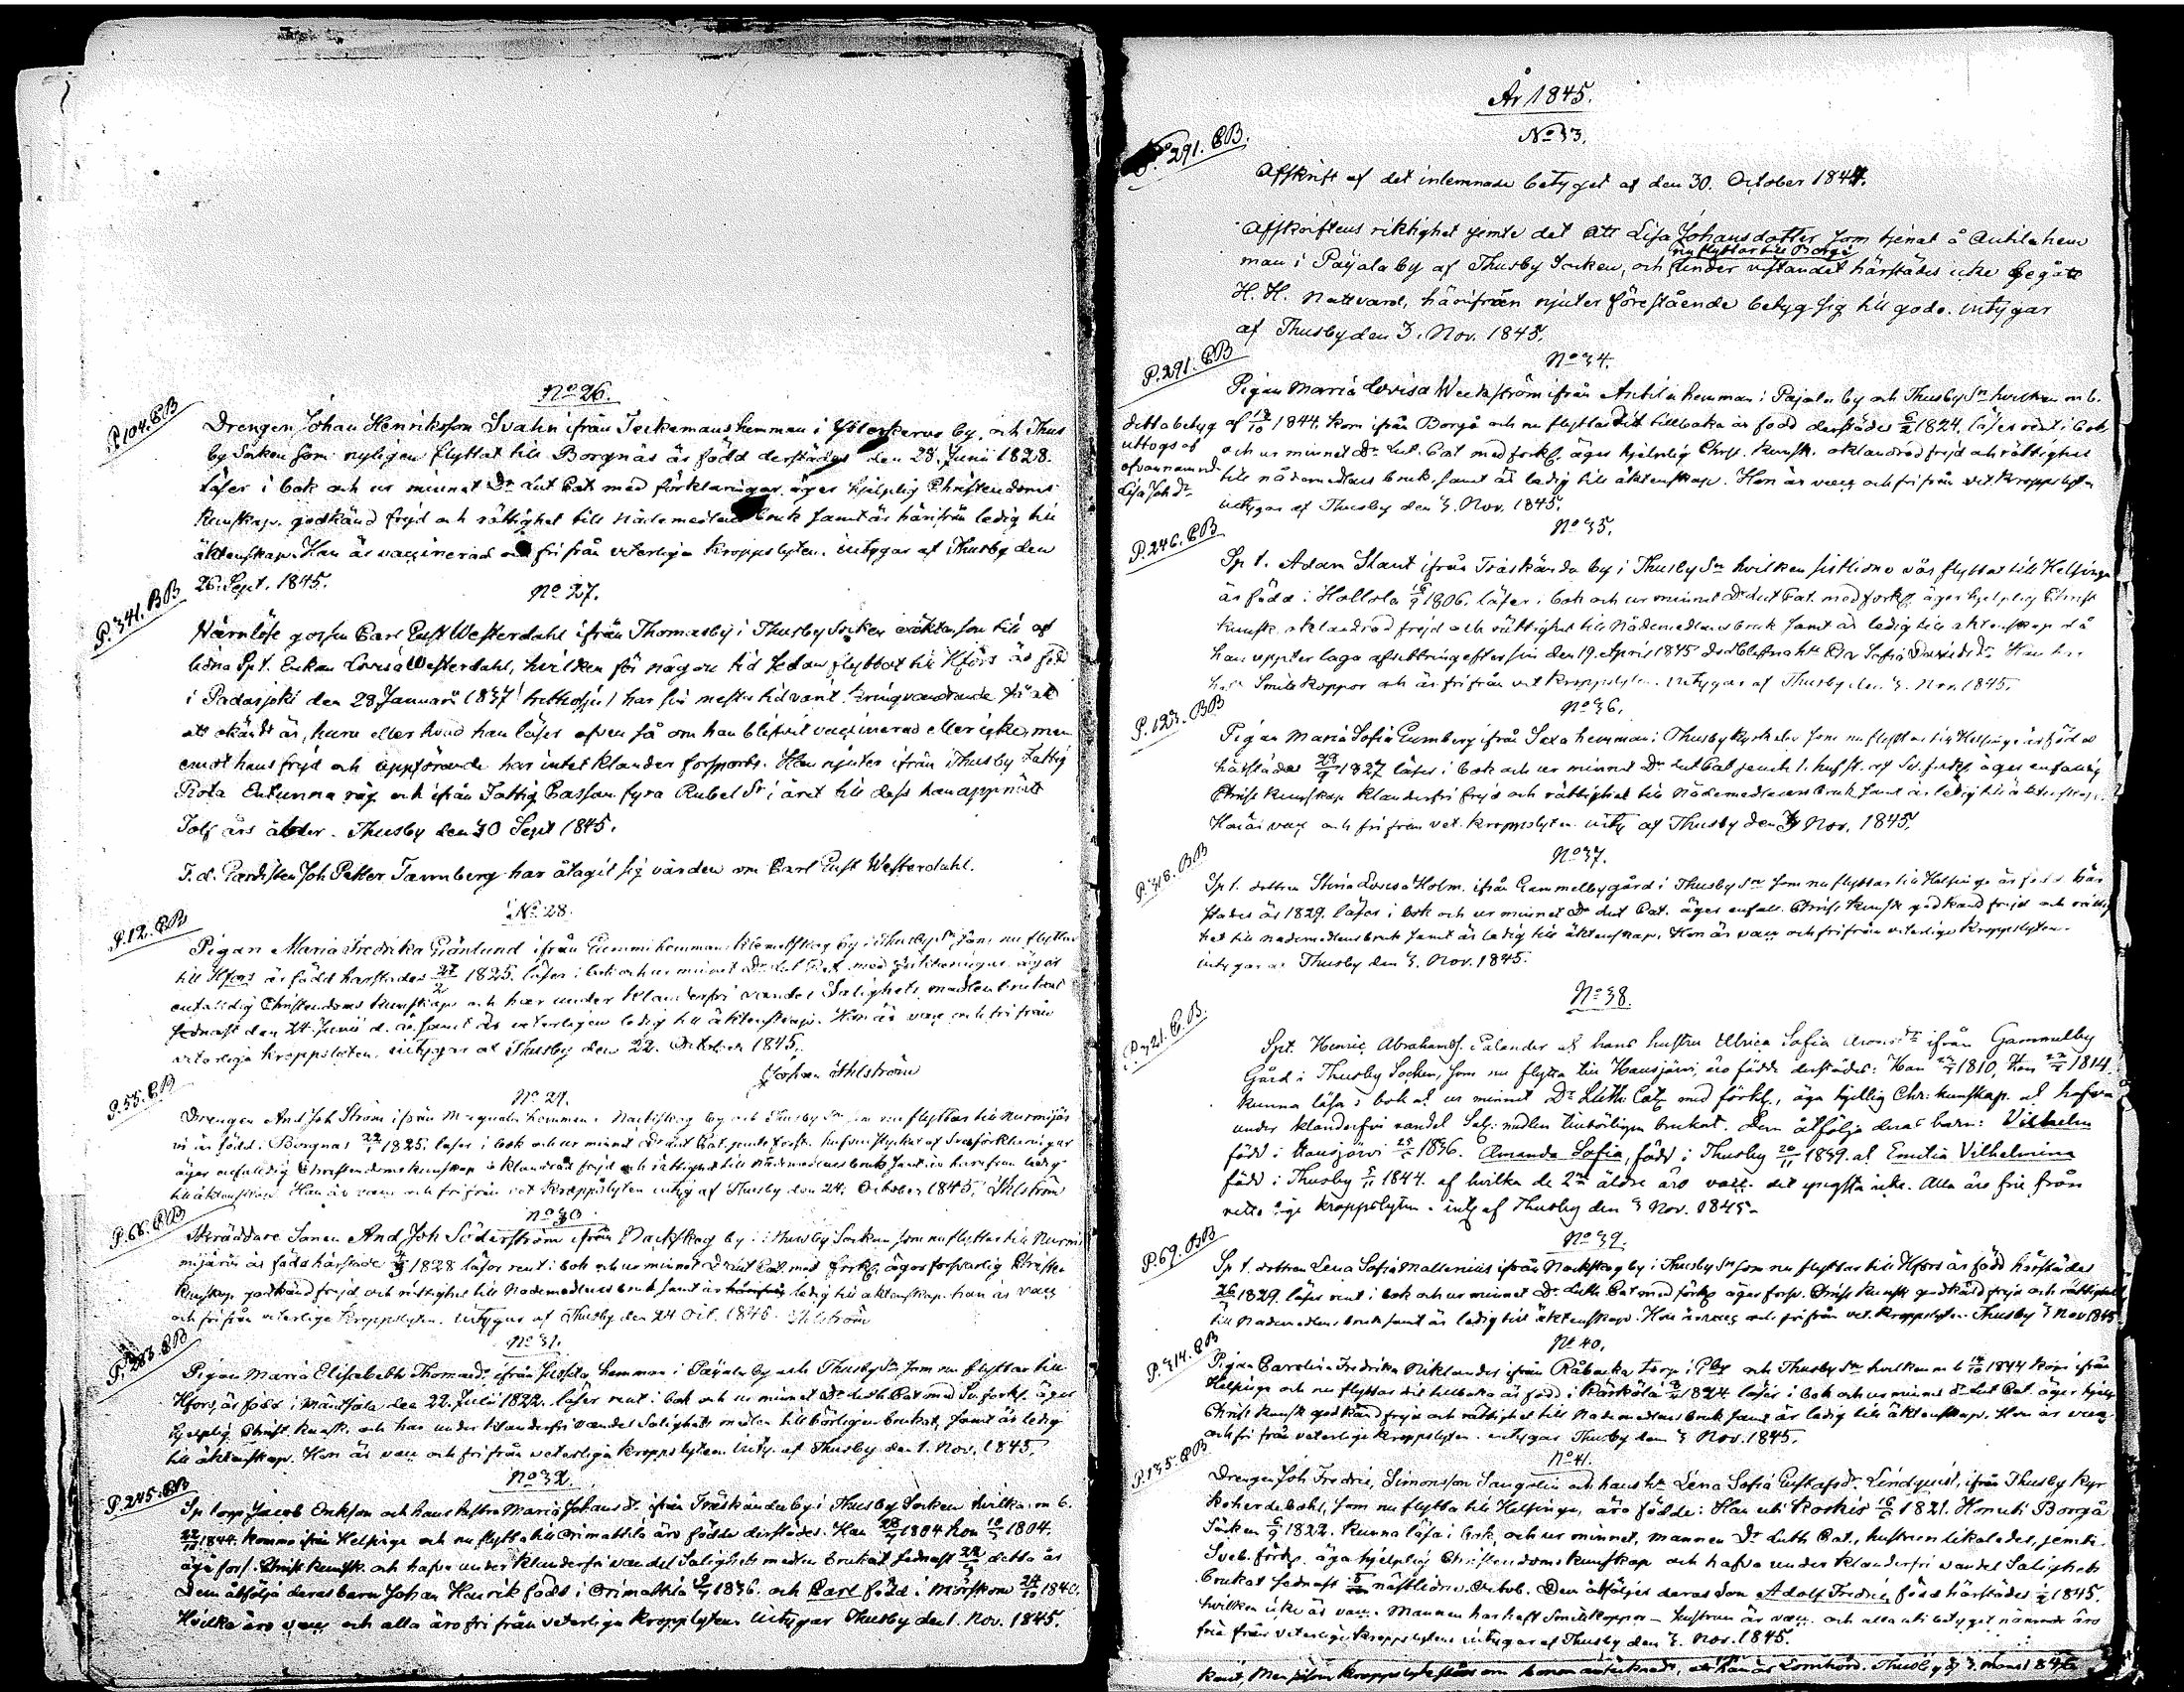 No 26.
P.104.BB
Drengen Johan Henriksson Svahn ifrån Jeikemans hemman i Ylöskervo by, och Thus
by Socken som nyligen flyttat till Borgnäs är född derstädes den 28. Junii 1828.
läser i bok och ur minnet Dr Lut Cat med förklaringar, äger hjelplig Christendoms
kunskap. godkänd frejd och rättighet till Nådemedlens bruk samt är härifrån ledig till
äktenskap. Han är vaccinerad och fri från veterliga kroppslyten. intygas af Thusby den
26. Sept. 1845.
No 27.
P.341.BB
Wärnlöse gossen Carl Gust Westerdahl ifrån Thomasby i Thusby Socken oäkta son till af
lidna Sp t. Enkan Lovisa Westerdahl, hvilken för någon tid sedan flyttat till Hfors är född
i Padasjoki den 28 Januari 1837 har sin mesta tid varit kringvandrande så att
att okändt är, huru eller hvad han läser äfven så om han blifvit vaccinerad eller icke, men
emot hans frejd och uppförande har intet klander försports. Han njuter ifrån Thusby Fattig
Rota En tunna råg och ifrån Fattig Cassan fyra Rubel Sr i året till dess han uppnått
Tolf års ålder. Thusby den 30 Sept 1845.
F.d. Gardisten Joh Petter Tarmberg har åtagit sig vården om Carl Gust Westerdahl.
No 28.
P.12.BB
Pigan Maria Fredrika Grönlund ifrån Gummi hemman by i Thusby Sn, som nu flyttar
till Hfors är född härstädes 27/2 1825. läser i bok och ur minnet Dr Lut Cat. med förklaringar äger
enfaldig Christendoms kunskap och har under klanderfri vandel Salighets medlen brukat
sednast den 24 Junii d. å. samt är veterligen ledig till äktenskap. Hon är vacc och fri från
veterliga kroppslyten. intygas af Thusby den 22. October 1845.
Johan Ahlström
No 29.
P.55.BB
Drengen And Joh Ström ifrån hemman i Nackskog by och Thusby Sn som nu flyttar till Nurmijär
vi är född i Borgnäs 1825. läser i bok och ur minnet Dr Lut Cat. jemte
äger enfaldig Christendoms kunskap oklandrad frejd och rättighet till Nådemedlens bruk samt är härifrån ledig
till äktenskap. Han är vacc och fri från vet kroppslyten intyg af Thusby den 24. October 1845. Ahlström
No 30.
P.66.BB
Skräddare Sonen And Joh Söderström ifrån Nackskog by i Thusby Socken som nu flyttar till Nurmi
mijärvi är född härstäde 1828 läser rent i bok och ur minnet Dr Lut Cat. med förkl. äger försvarlig Christe
kunskap godkänd frejd och rättighet till Nådemedlens bruk samt är härifrån ledig till äktenskap. han är vacc
och fri från veterliga kroppslyten. intygas af Thusby den 24 Oct. 1845. Ahlström
No 31.
P.283.BB
Pigan Maria Elisabeth Thomasdr ifrån hemman i Pajala by och Thusby Sn som nu flyttar till
Hfors, är född i Mäntsälä den 22. Julii 1822. läser rent i bok och ur minnet Dr Luth Cat med Sv. förkl. äger
hjelplig Christ. kunsk. och har under klanderfri vandel Salighets medlen tillbörligen brukat, samt är ledig
till äktenskap. Hon är vacc och fri från veterliga kroppslyten. intyg. af Thusby den 1. Nov. 1845.
No 32.
P.245.BB
Sp torp Jacob Erikson och hans hustru Maria Johansdr. ifrån Träskända by i Thusby Socken hvilka m b.
1844. kommo ifrån Helsinge och nu flytta till Orimattila äro födda derstädes. Han 28/4 1804 hon 1804.
äga förs. Christ kunsk. och hafva under klanderfri vandel Salighets medlen brukat sednast detta år
Dem åtfölja deras barn Johan Henrik född i Orimattila 1836. och Carl född i Mörskom 24/10 1840.
Hvilka äro vacc och alla äro fri från veterliga kroppslyten intygar Thusby den 1. Nov. 1845.
År 1845.
No 33.
P.291.BB.
Afskrift af det inlemnade betyget af den 30. October 1844.
Afskriftens riktighet jemte det att Lisa Johansdotter som tjenat å Anttila hem
nu flyttar till Borgå
man i Pajala by af Thusby Socken, och under vistandet härstädes icke begått
H. H. Nattvard, härifrån njuter förestående betyg sig till godo. intygar
af Thusby den 3. Nov. 1845.
No 34.
P.291.BB
Pigan Maria Lovisa Weckström ifrån Anttila hemman i Pajala by och Thusby Sn hvilken m b.
detta betyg
uttogs af
ofvannamnd
Lisa Joh dr
af 1844. kom ifrån Borgå och nu flyttar dit tillbaka är född derstädes 1824. läser rent i bok
och ur minnet Dr Lut. Cat med förkl. äger hjelplig Christ. kunsk. oklandrad frejd och rättighet
till nådemedlens bruk, samt är ledig till äktenskap. Hon är vacc och fri från vet kroppslyten
intygas af Thusby den 3. Nov. 1845.
No 35.
P.246.BB
Sp t. Adam Stant ifrån Träskända by i Thusby Sn hvilken sistlidne vår flyttat till Helsinge
är född i Hollola 1806. läser i bok och ur minnet Dr Lut Cat. med förkl. äger hjelplig Christ
kunsk. oklandrad frejd och rättighet till Nådemedlens bruk samt är ledig till äktenskap då
han uppter laga afvittring efter sin den 19. April 1845 Sofia Davidsdr. Han har
haft Smittkoppor och är fri från vet kroppslyten. intygas af Thusby den 3. Nov. 1845.
No 36.
P.123.BB
Pigan Maria Sofia Gumberg ifrån Saxa hemman i Thusby kyrkoby som nu flyttar till Helsinge är född
härstädes 1827 läser i bok och ur minnet Dr Lut Cat jemte äger enfaldig
Christ kunskap klanderfri frejd och rättighet till Nådemedlens bruk samt är ledig till äktenskap.
Hon är vacc och fri från vet. kroppslyten. intyg af Thusby den 3 Nov. 1845.
No 37.
P.318.BB
Sp t. dottren Stina Lovisa Holm. ifrån Gammelbygård i Thusby Sn som nu flyttar till Helsinge är född här
städes år 1829. läser i bok och ur minnet Dr Lut Cat. äger enfall. Christ kunsk godkänd frejd och rättig
het till nådemedlens bruk samt är ledig till äktenskap. Hon är vacc och fri från veterliga kroppslyten.
intygas af Thusby den 3. Nov. 1845.
No 38.
P.321.B.B.
Spt. Henric Abrahams. Palander och hans hustru Ulrica Sofia Aronsdtr ifrån Gammelby
Gård i Thusby Socken, som nu flytta till Hausjärvi, äro födde derstädes: Han 1810, hon 1814,
kunna läsa i bok och ur minnet Dr Luth: Cat med förkl., äga hjellig Chr: kunskap. och hafva
under klanderfri vandel Salig: medlen tillbörligen brukat. Dem åtfölja deras barn: Vilhelm
född i Hausjärvi 1836. Amanda Sofia, född i Thusby 20/11 1839. och Emilia Vilhelmina
född i Thusby 1844. af hvilka de 2ne äldre äro vacc. det yngsta icke. Alla äro fria från
kroppslyten. intyg af Thusby den 3 Nov. 1845.
No 39.
P.69.BB
Sp t. dottren Lena Sofia Mallenius ifrån Nackskog by i Thusby Sn som nu flyttar till Hfors är född härstädes
1829. läser rent i bok och ur minnet Dr Luth Cat med förkl äger försv. Christ kunsk godkänd frejd och rättighet
till Nådemedlens bruk samt är ledig till äktenskap. Hon är vacc och fri från vet. kroppslyten Thusby 3 Nov 1845
No 40.
P.314.BB
Pigan Carolina Fredrika Niklander ifrån Råbacka torp i och Thusby Sn hvilken m b 1844 kom ifrån
Helsinge och nu flyttar dit tillbaka är född i Kärkölä 1824 läser i bok och ur minne Dr Lut Cat. äger hjelp
Christ kunsk godkänd frejd och rättighet till Nådemedlens bruk samt är ledig till äktenskap. Hon är vacc
och fri från veterliga kroppslyten. intygas Thusby den 3 Nov. 1845.
No 41.
P.135.BB
Drengen Joh Fredric, Simonsson Sangelin och hans hu Lena Sofia Gustafsdr. Lindqvist, ifrån Thusby kyr
koherdebohl, som nu flytta till Helsinge, äro födde: Han uti Koskis 1821. Hon uti Borgå
Socken 1822. kunna läsa i bok, och ur minnet, mannen Dr Luth Cat., hustrun likaledes, jemte
Sveb. förkl. äga hjelplig Christendoms kunskap och hafva under klanderfri vandel Salighets
brukat sednast nästlidne Octob. Dem åtföljer deras Son Adolf Fredric född härstädes 1845.
hvilken icke är vacc. Mannen har haft Smittkoppor - hustrun är vacc. och alla uti betyget nämnde äro
fria från veterliga kroppslyten intygas af Thusby den 3. Nov. 1845.